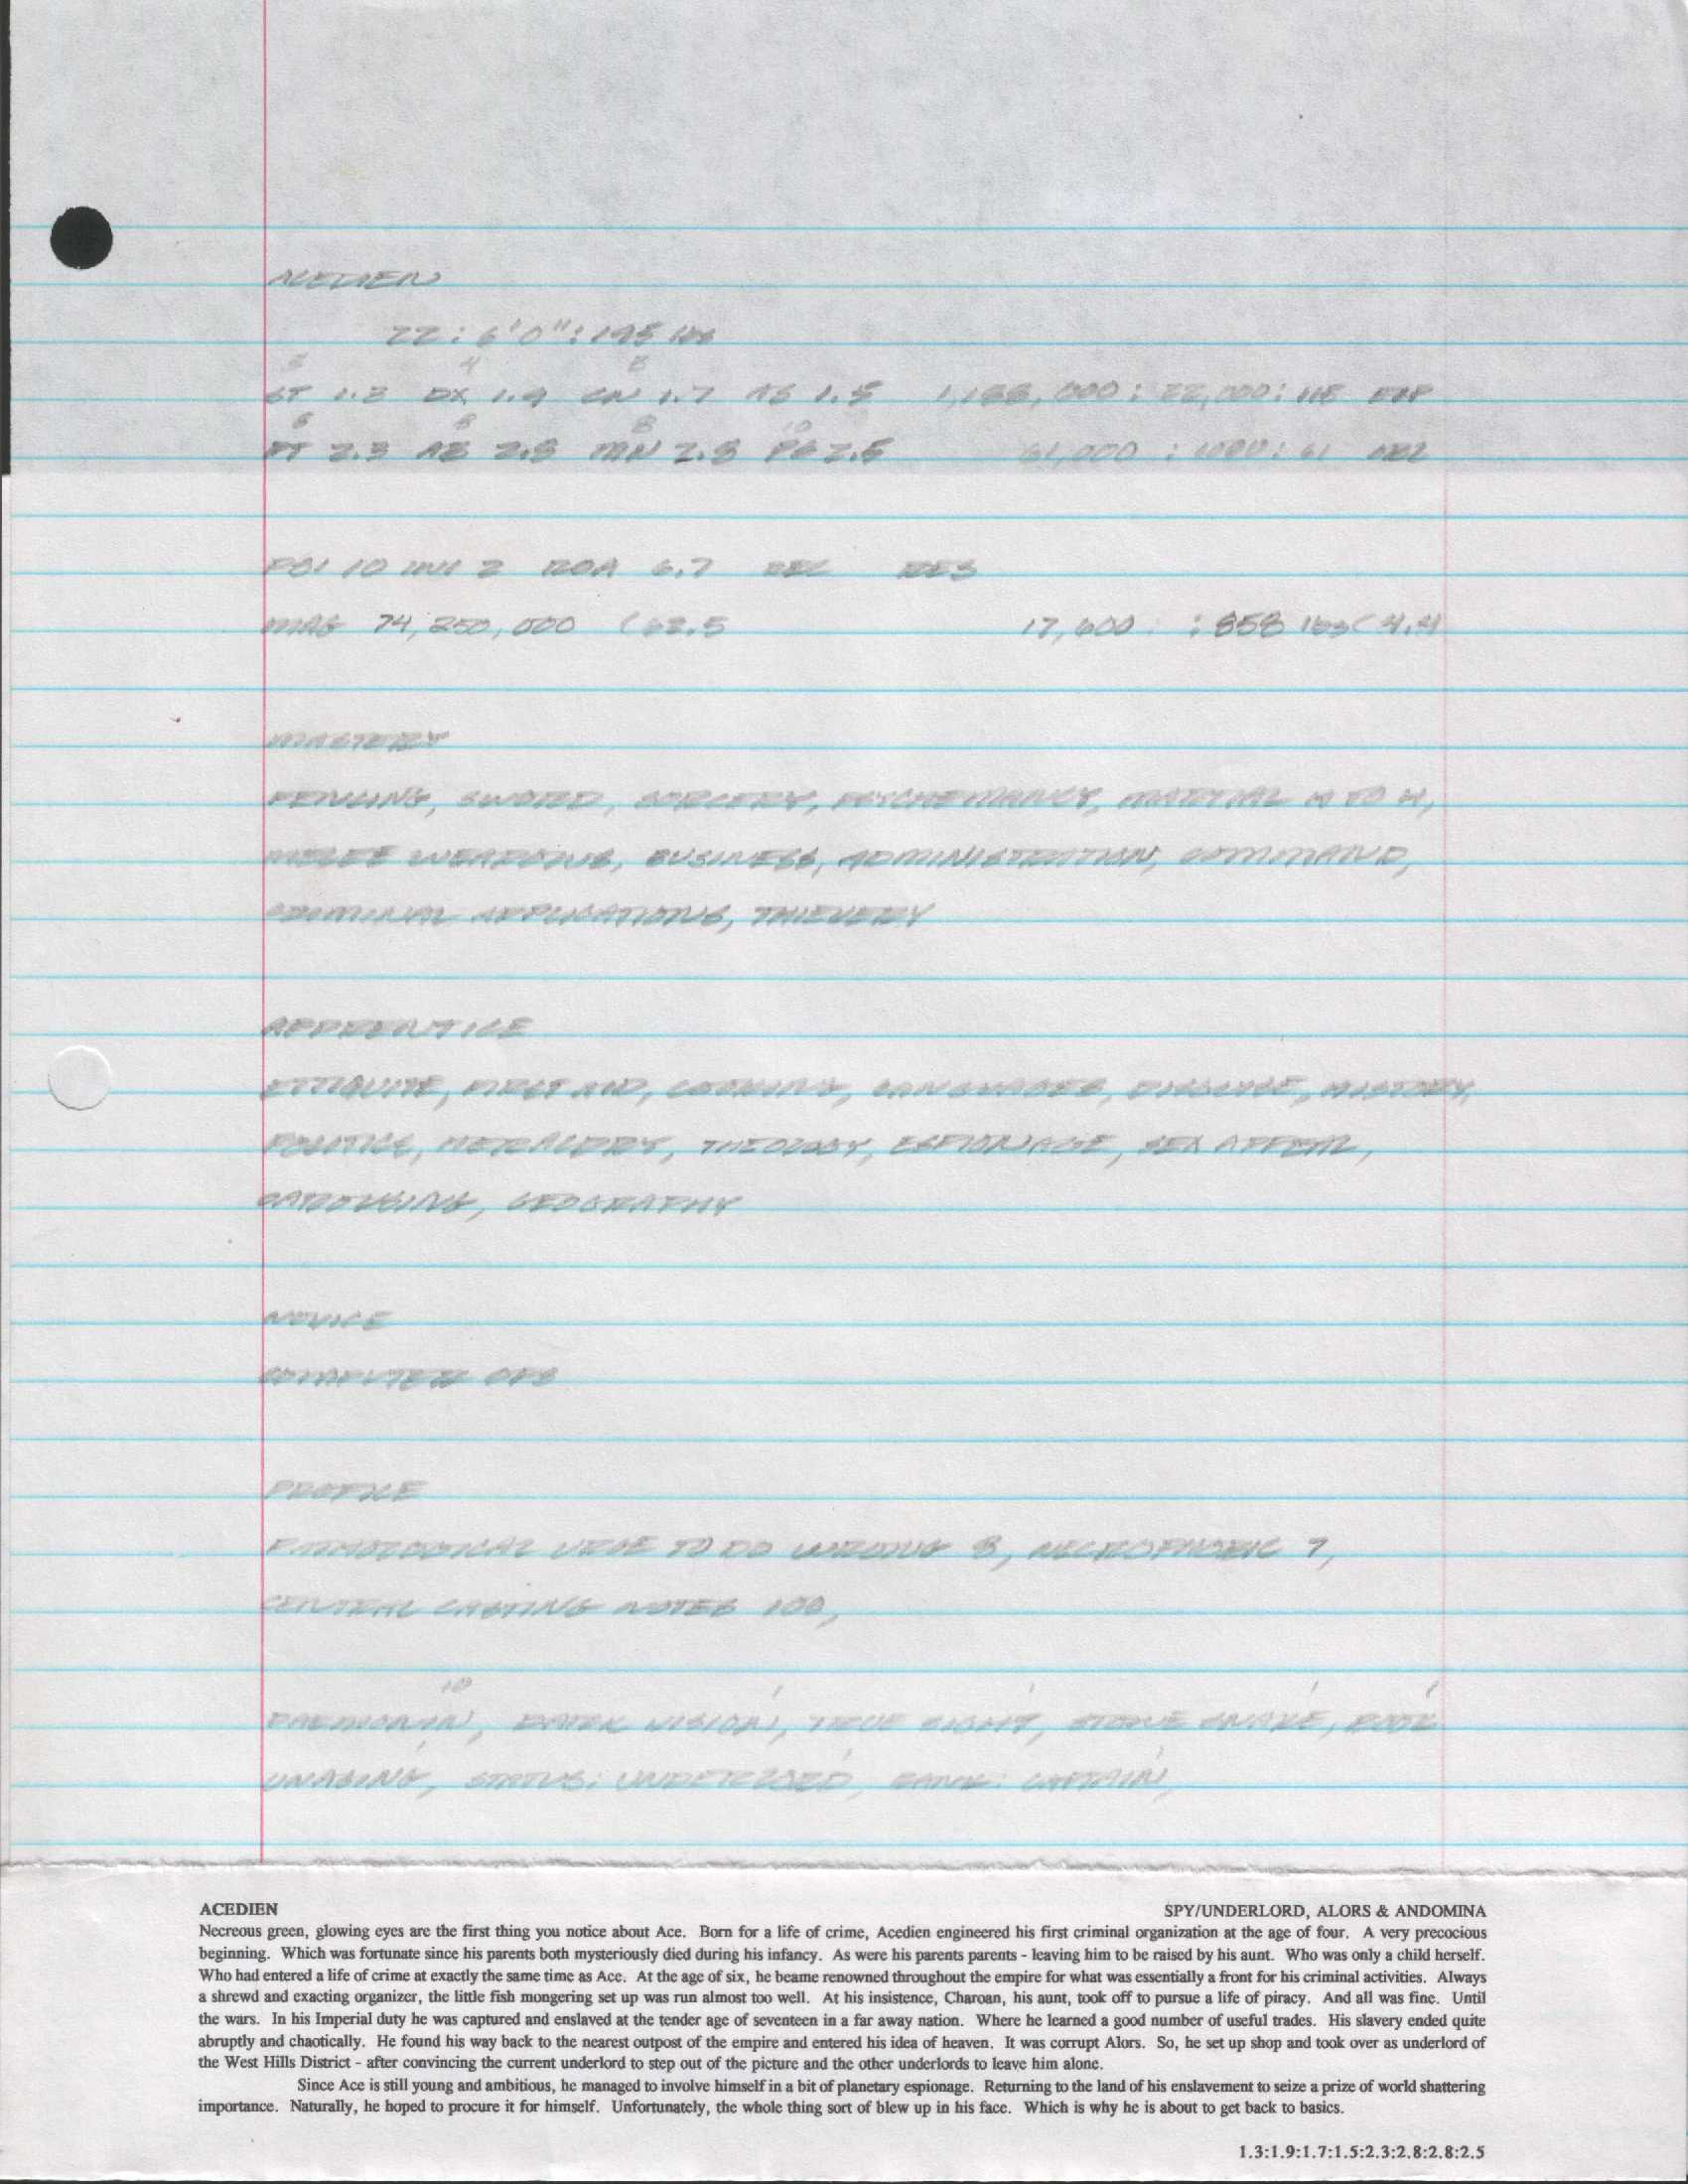 ACEDIEN
22 : 6'0" : 195 lbs
ST 1.3 DX 1.9 CN 1.7 AG 1.5 : 22,000 :
PT 2.3 AE 2.8 MN 2.8 PG 2.5 61,000 : : 61
10 2 ROA 6.7 REC RES
MAG 74,250,000 (62.5 17,600 : 858 lbs (4.4)
MASTERY
FENCING, SWORD, SORCERY, PSYCHEMANCY, MARTIAL H TO H,
MELEE WEAPONS, BUSINESS, ADMINISTRATION, COMMAND,
CRIMINAL APPLICATIONS, THIEVERY
APPRENTICE
ETTIQUITE, FIRST AID, COOKING, LANGUAGES, DISGUISE, HISTORY,
POLITICS, HERALDRY, THEOLOGY, ESPIONAGE, SEX APPEAL,
CAROUSING, GEOGRAPHY
NOVICE
COMPUTER OPS
PROFILE
PATHOLOGICAL URGE TO DO WRONG 8, NECROPHOBIC 7,
CENTRAL CASTING NOTES 100,
10 1 1 1 1
DARK VISION, TRUE SIGHT, STONE
UNAGING, STATUS: UNDERLORD, RANK: CAPTAIN,
ACEDIEN SPY/UNDERLORD, ALORS & ANDOMINA
Necreous green, glowing eyes are the first thing you notice about Ace. Born for a life of crime, Acedien engineered his first criminal organization at the age of four. A very precocious
beginning. Which was fortunate since his parents both mysteriously died during his infancy. As were his parents parents - leaving him to be raised by his aunt. Who was only a child herself.
Who had entered a life of crime at exactly the same time as Ace. At the age of six, he beame renowned throughout the empire for what was essentially a front for his criminal activities. Always
a shrewd and exacting organizer, the little fish mongering set up was run almost too well. At his insistence, Charoan, his aunt, took off to pursue a life of piracy. And all was fine. Until
the wars. In his Imperial duty he was captured and enslaved at the tender age of seventeen in a far away nation. Where he learned a good number of useful trades. His slavery ended quite
abruptly and chaotically. He found his way back to the nearest outpost of the empire and entered his idea of heaven. It was corrupt Alors. So, he set up shop and took over as underlord of
the West Hills District - after convincing the current underlord to step out of the picture and the other underlords to leave him alone.
Since Ace is still young and ambitious, he managed to involve himself in a bit of planetary espionage. Returning to the land of his enslavement to seize a prize of world shattering
importance. Naturally, he hoped to procure it for himself. Unfortunately, the whole thing sort of blew up in his face. Which is why he is about to get back to basics.
1.3:1.9:1.7:1.5:2.3:2.8:2.8:2.5